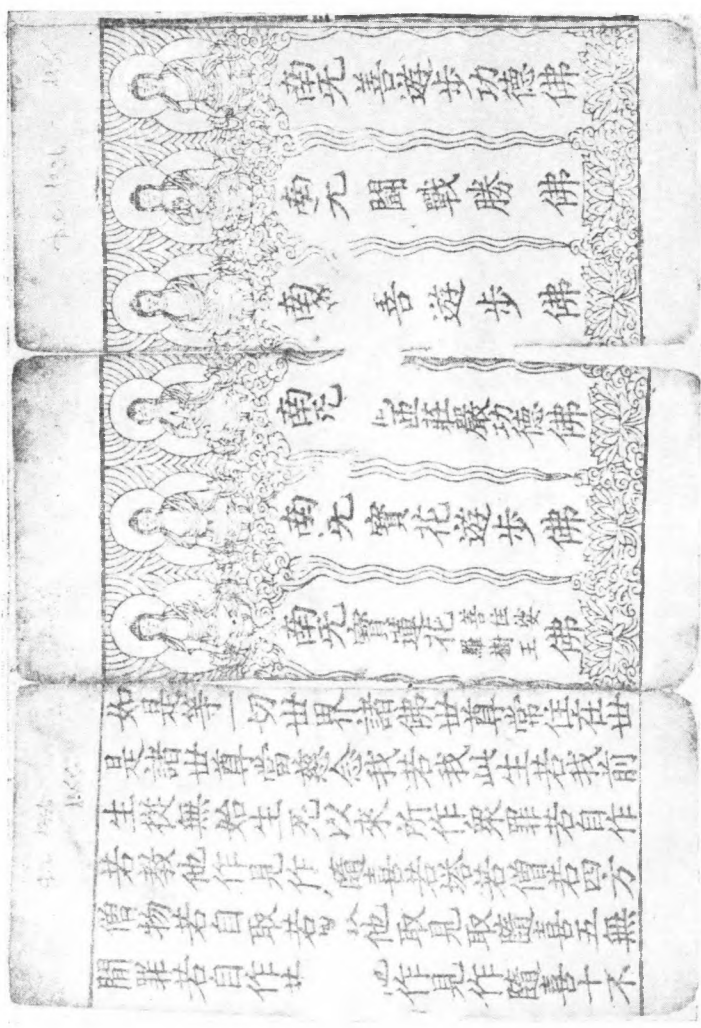 南无善遊步功德佛
南无鬪戰勝佛
南善遊步佛
南无帀莊嚴功德佛
南无寶花遊步佛
南无寶蓮花善住娑羅樹王佛
如是等一切世界諸佛世尊常住在世
是諸世尊當慈念我若我此生若我前
生從無始生死以來所作衆罪若自作
若教他作見作隨喜若塔若僧若四方
僧物若自取若他取見取隨喜五無
間罪若自作作見作隨喜十不